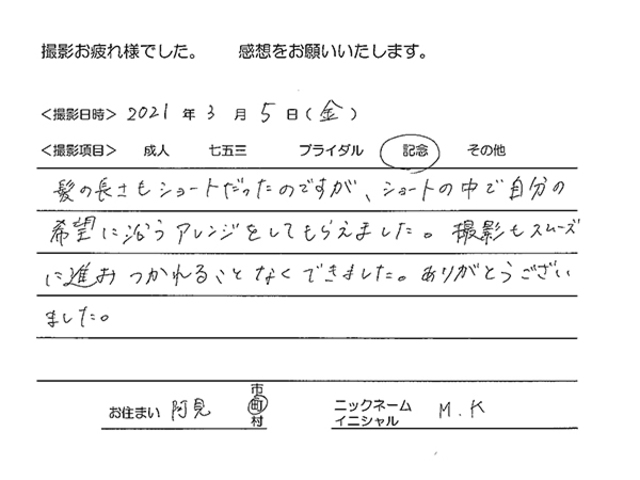 撮影お疲れ様でした。 感想をお願いいたします。
<撮影日時> 2021 年 3 月 5 日 (金)
<撮影項目> 成人 七五三 ブライダル 記念 その他
髪の長さもショートだったのですが、ショートの中で自分の
希望に沿うアレンジをしてもらえました。撮影もスムーズ
に進み つかれることなくできました。ありがとうござい
ました。
お住まい 阿見 市町村
ニックネーム イニシャル M.K